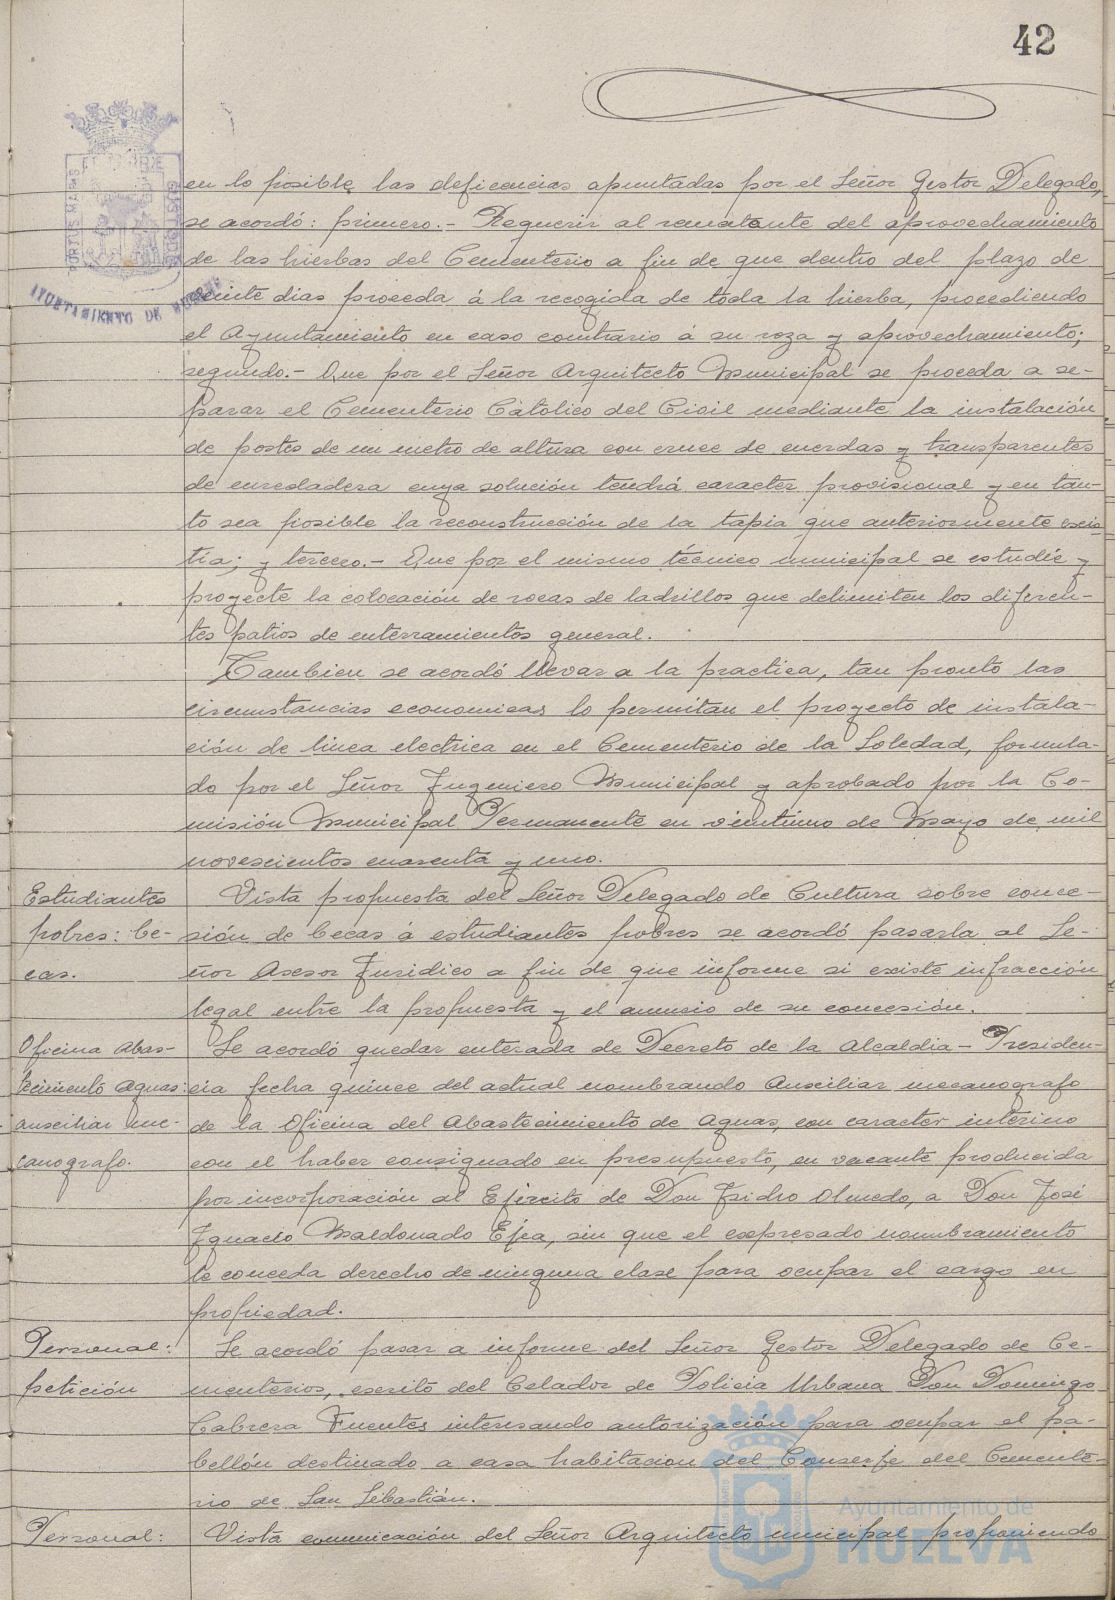 42
PORTUS MARIS
CUSTODIA
AYUNTAMIENTO DE HUELVA
en lo posible las deficencias apuntadas por el Señor Gestor Delegado,
se acordó: primero.- Requerir al rematante del aprovechamiento
de las hierbas del Cementerio a fin de que dentro del plazo de
veinte dias proceda á la recogida de toda la hierba, procediendo
el Ayuntamiento en caso contrario á su roza y aprovechamiento;
segundo.- Que por el Señor Arquitecto Municipal se proceda a se-
parar el Cementerio Católico del Civil mediante la instalación
de postes de un metro de altura con cruce de cuerdas y transparentes
de enredadera cuya solución tendrá caracter provisional y en tan-
to sea posible la reconstrucción de la tapia que anteriormente exis-
tía; y tercero.- Que por el mismo técnico municipal se estudie y
proyecte la colocación de rocas de ladrillos que delimiten los diferen-
tes patios de enterramientos general.
Tambien se acordó llevar a la practica, tan pronto las
circunstancias economicas lo permitan el proyecto de instala-
ción de linea electrica en el Cementerio de la Soledad, formula-
do por el Señor Ingeniero Municipal y aprobado por la Co-
misión Municipal Permanente en veintiuno de Mayo de mil
novescientos cuarenta y uno.
Estudiantes
pobres: be-
cas.
Vista propuesta del Señor Delegado de Cultura sobre conce-
sión de becas á estudiantes pobres se acordó pasarla al Se-
ñor Asesor Juridico a fin de que informe si existe infracción
legal entre la propuesta y el anuncio de su concesión.
Oficina Abas-
tecimiento Aguas:
auxiliar me-
canografo.
Se acordó quedar enterada de Decreto de la Alcaldia - Presiden-
cia fecha quince del actual nombrando Auxiliar mecanografo
de la Oficina del Abastecimiento de Aguas, con caracter interino
con el haber consignado en presupuesto, en vacante producida
por incorporación al Ejército de Don Isidro Olmedo, a Don José
Ignacio Maldonado Ejea, sin que el expresado nombramiento
le conceda derecho de ninguna clase para ocupar el cargo en
propiedad.
Personal:
petición
Se acordó pasar a informe del Señor Gestor Delegado de Ce-
menterios, escrito del Celador de Policia Urbana Don Domingo
Cabrera Fuentes interesando autorización para ocupar el pa-
bellón destinado a casa habitacion del Conserje del Cemente-
rio de San Sebastián.
Personal:
Vista comunicación del Señor Arquitecto municipal proponiendo
Ayuntamiento de
HUELVA